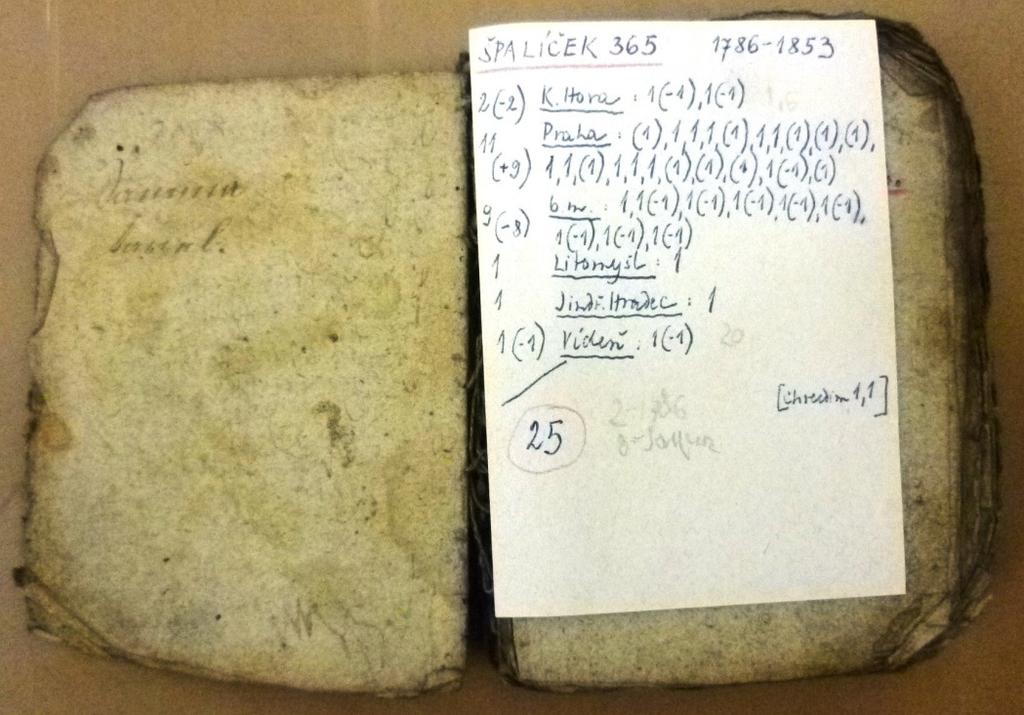 ŠPALÍČEK 365 1786-1853
2(-2) K. Hora : 1(-1), 1(-1)
11 Praha : (1), 1, 1, 1, (1), 1, 1, (1), (1), (1),
(+9) 1, 1, (1), 1, 1, 1, (1), (1), (1), 1(-1), (1)
9(-8) b. m. : 1, 1(-1), 1(-1), 1(-1), 1(-1), 1(-1),
1(-1), 1(-1), 1(-1)
1 Litomyšl : 1
1 Jindř. Hradec : 1
1(-1) Vídeň : 1(-1) 20
[Chrudim 1, 1]
25
2-1786